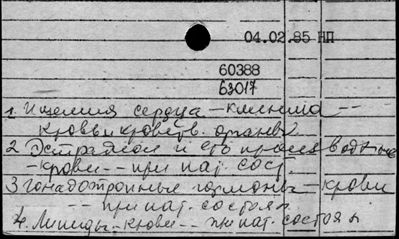 04.02.85 НП
60388
62017
1. Ишемия сердца – клиника --
кровь и кроветв. органы
2 Эстрадиол и его производные
- крови -- при пат. сост.
3 Гонадотропные гормоны – крови
-- при пат. состоян
4. Липиды - крови -- при пат. состоян